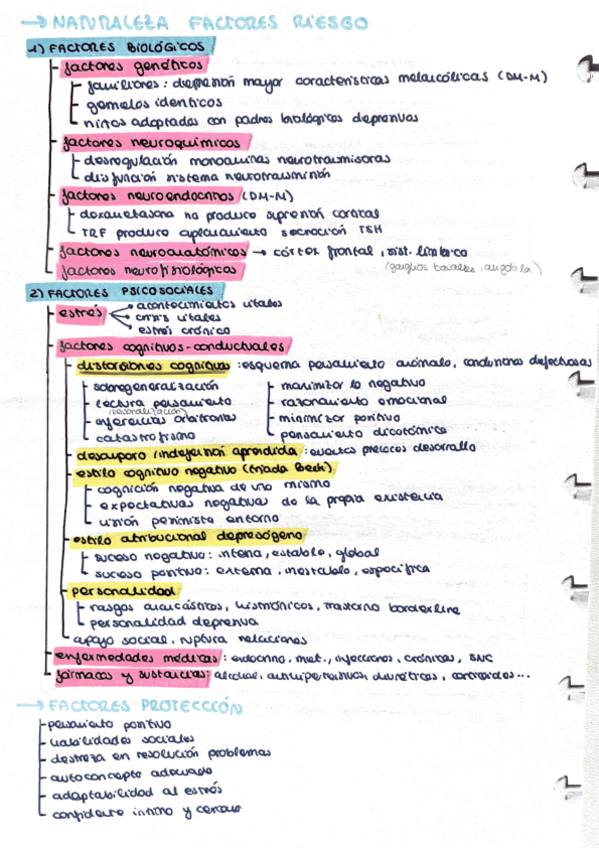 → NATURALEZA FACTORES RIESGO
1) FACTORES BIOLÓGICOS
factores genéticos
familiares: depresión mayor características melancólicas (DM-M)
gemelos idénticos
niños adoptados con padres biológicos depresivos
factores neuroquímicos
desregulación monoaminas neurotransmisoras
disfunción sistema neurotransmisión
factores neuroendocrinos (DM-M)
dexametasona no produce supresión cortical
TRF produce aplanamiento secreción TSH
factores neuroanatómicos → córtex frontal, sist. límbico
factores neurofisiológicos (ganglios basales, amígdala)
2) FACTORES PSICOSOCIALES
estrés
acontecimientos vitales
crisis vitales
estrés crónico
factores cognitivos-conductuales
distorsiones cognitivas: esquema pensamiento anómalo, conductas defectuosas
sobregeneralización
lectura pensamiento
(personalización)
inferencias arbitrarias
catastrofismo
maximizar lo negativo
razonamiento emocional
minimizar positivo
pensamiento dicotómico
desamparo/indefensión aprendida: eventos precoces desarrollo
estilo cognitivo negativo (tríada Beck)
cognición negativa de uno mismo
expectativas negativas de la propia existencia
visión pesimista entorno
estilo atribucional depresógeno
suceso negativo: interna, estable, global
suceso positivo: externa, inestable, específica
personalidad
rasgos anacásticos, histriónicos, trastorno borderline
personalidad depresiva
apoyo social, ruptura relaciones
enfermedades médicas: endocrino, met., infecciones, crónicas, SNC
fármacos y sustancias: alcohol, antihipertensivos, diuréticos, corticoides...
→ FACTORES PROTECCIÓN
pensamiento positivo
habilidades sociales
destreza en resolución problemas
autoconcepto adecuado
adaptabilidad al estrés
confidente íntimo y cercano